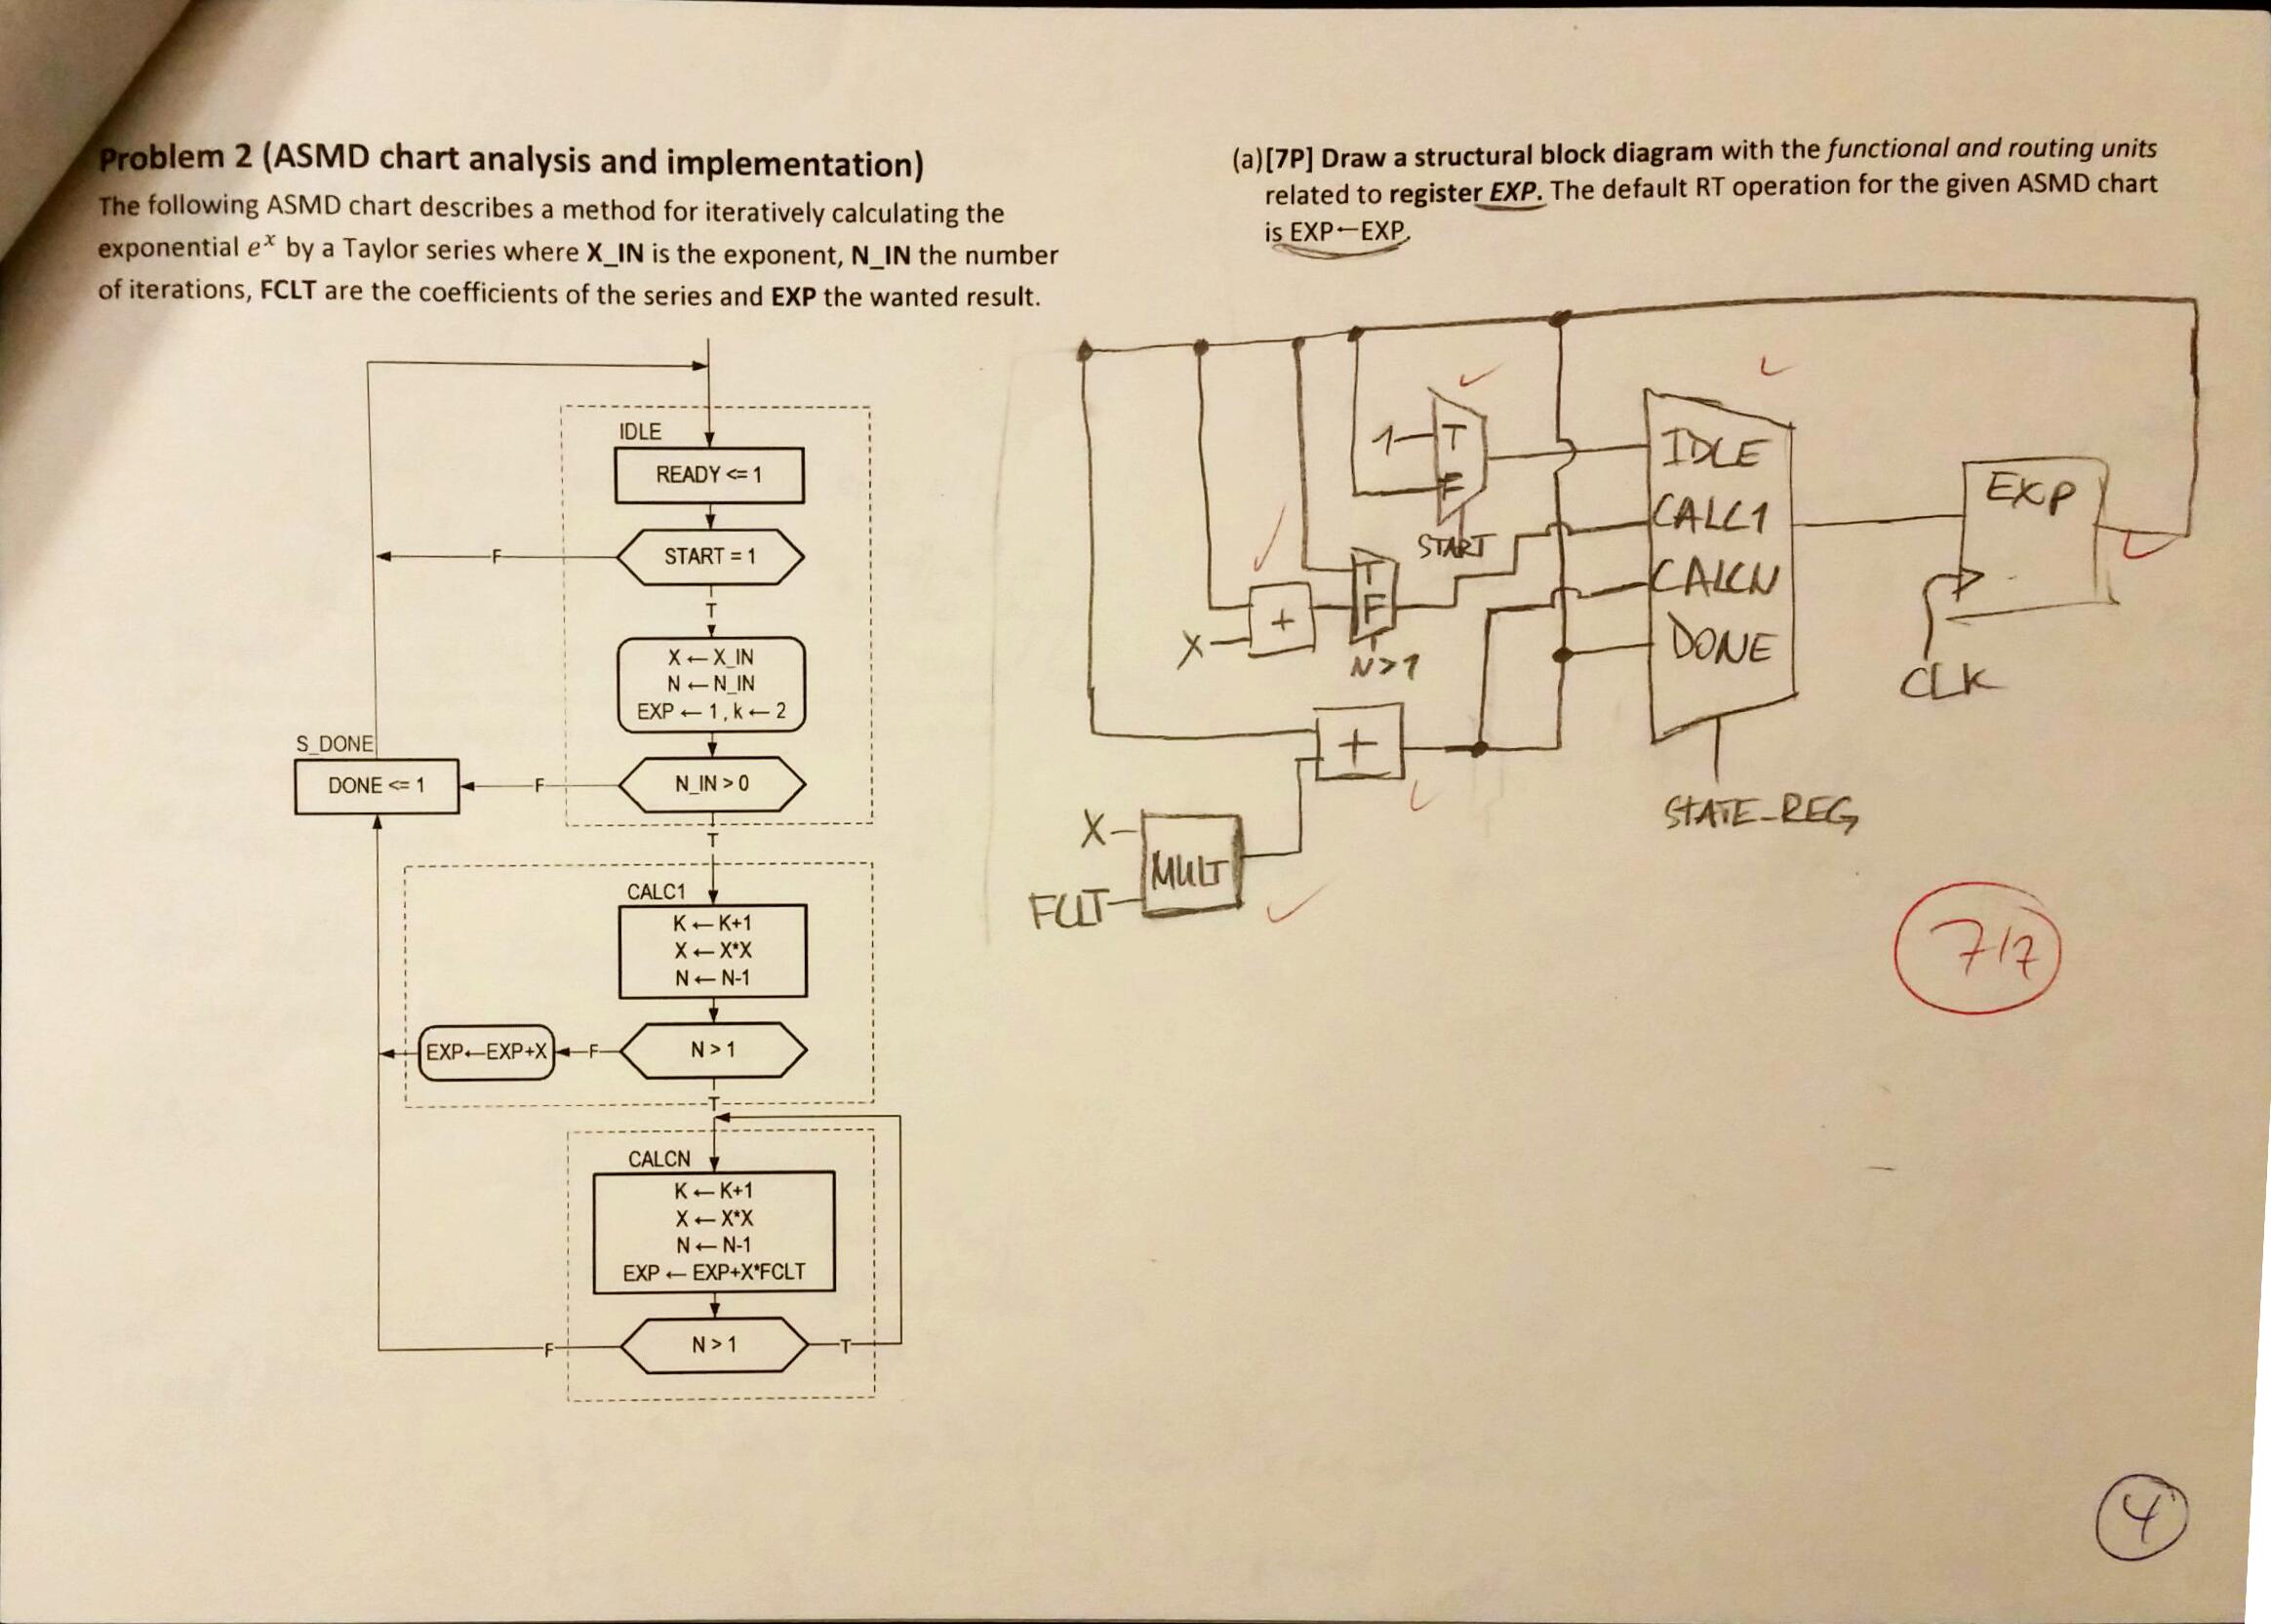 Problem 2 (ASMD chart analysis and implementation)
The following ASMD chart describes a method for iteratively calculating the
exponential e^x by a Taylor series where X_IN is the exponent, N_IN the number
of iterations, FCLT are the coefficients of the series and EXP the wanted result.
IDLE
READY <= 1
F
START = 1
T
X ← X_IN
N ← N_IN
EXP ← 1 , k ← 2
S_DONE
DONE <= 1
F
N_IN > 0
T
CALC1
K ← K+1
X ← X*X
N ← N-1
EXP←EXP+X
F
N > 1
T
CALCN
K ← K+1
X ← X*X
N ← N-1
EXP ← EXP+X*FCLT
F
N > 1
T
(a)[7P] Draw a structural block diagram with the functional and routing units
related to register EXP. The default RT operation for the given ASMD chart
is EXP←EXP.
1
T
F
START
IDLE
CALC1
CALCN
DONE
STATE_REG
EXP
CLK
X
+
T
F
N>1
+
X
FCLT
MULT
7/7
4